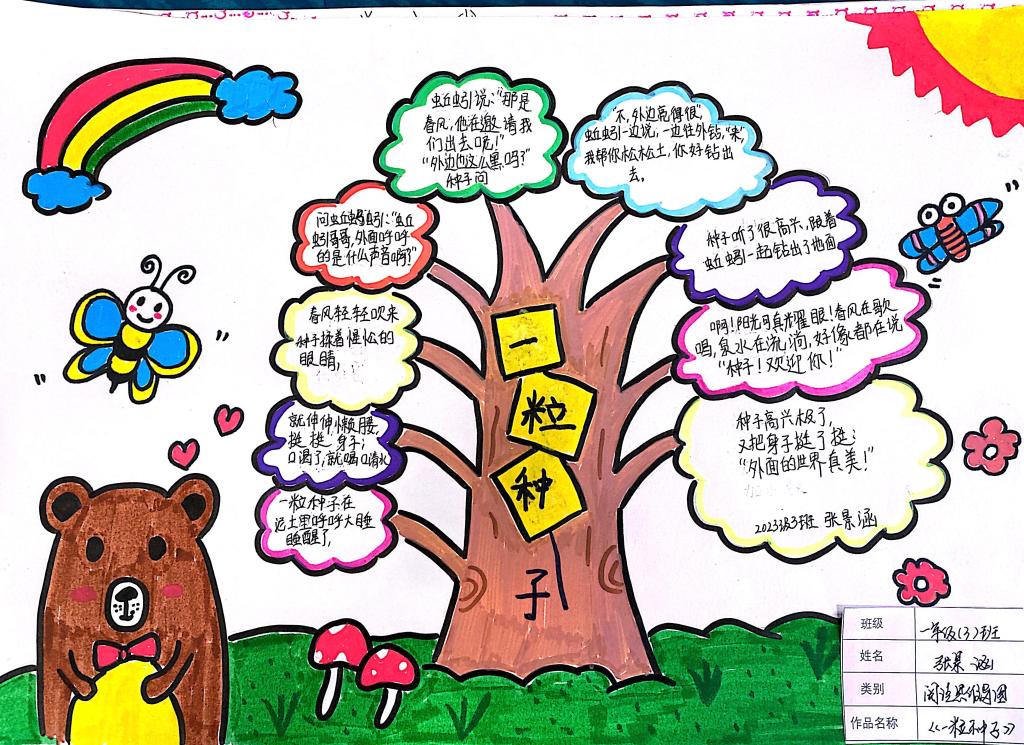 一
粒
种
子
一粒种子在
泥土里呼呼大睡
睡醒了,
就伸伸懒腰,
挺挺身子;
口渴了,就喝口清水
春风轻轻吹来
种子揉着惺忪的
眼睛,
问蚯蚓:“蚯
蚓哥哥,外面呼呼
的是什么声音啊?”
蚯蚓说:“那是
春风,他在邀请我
们出去呢!”
“外边也这么黑吗?”
种子问
“不,外边亮得很”
蚯蚓一边说,一边往外钻,“来,
我帮你松松土,你好钻出
去。
种子听了很高兴,跟着
蚯蚓一起钻出了地面
啊!阳光可真耀眼!春风在歌
唱,泉水在流淌,好像都在说
“种子!欢迎你!”
种子高兴极了,
又把身子挺了挺:
“外面的世界真美!”
2023级3班 张景涵
班级 一年级(3)班
姓名 张景涵
类别 阅读思维导图
作品名称 《一粒种子》